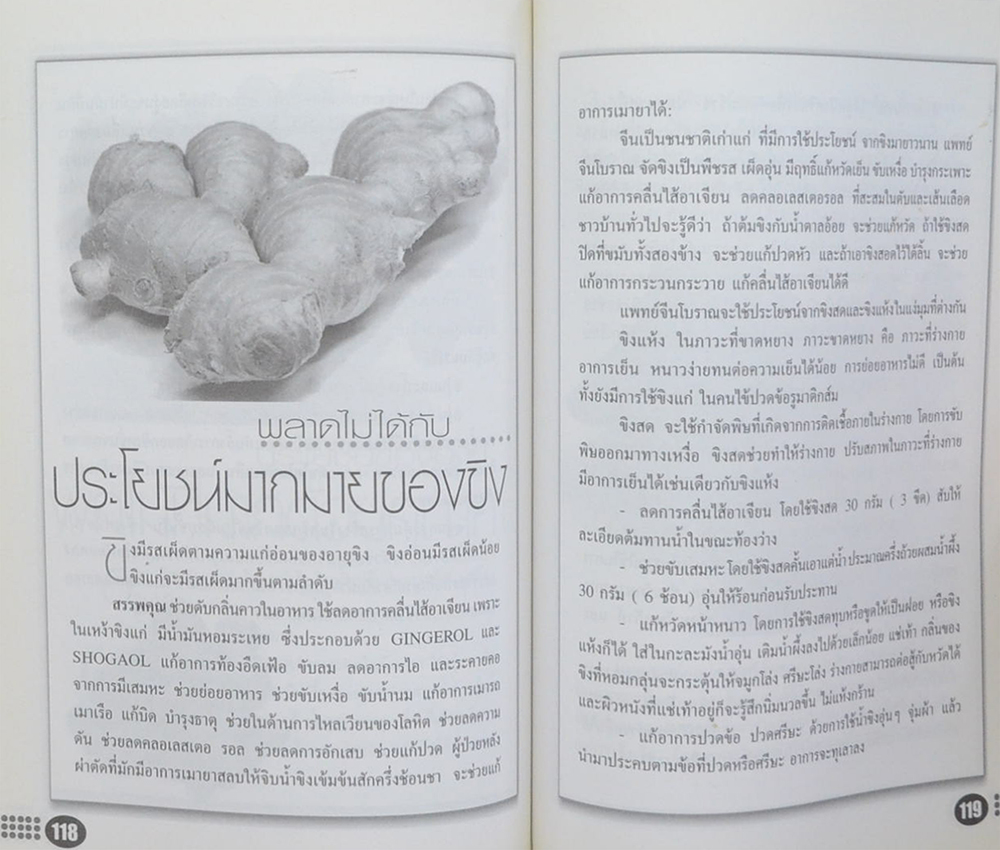 พลาดไม่ได้กับ
ประโยชน์มากมายของขิง
ขิงมีรสเผ็ดตามความแก่อ่อนของอายุขิง ขิงอ่อนมีรสเผ็ดน้อย
ขิงแก่จะมีรสเผ็ดมากขึ้นตามลำดับ
สรรพคุณ ช่วยดับกลิ่นคาวในอาหาร ใช้ลดอาการคลื่นไส้อาเจียน เพราะ
ในเหง้าขิงแก่ มีน้ำมันหอมระเหย ซึ่งประกอบด้วย GINGEROL และ
SHOGAOL แก้อาการท้องอืดเฟ้อ ขับลม ลดอาการไอ และระคายคอ
จากการมีเสมหะ ช่วยย่อยอาหาร ช่วยขับเหงื่อ ขับน้ำนม แก้อาการเมารถ
เมาเรือ แก้บิด บำรุงธาตุ ช่วยในด้านการไหลเวียนของโลหิต ช่วยลดความ
ดัน ช่วยลดคลอเลสเตอ รอล ช่วยลดการอักเสบ ช่วยแก้ปวด ผู้ป่วยหลัง
ผ่าตัดที่มักมีอาการเมายาสลบให้จิบน้ำขิงเข้มข้นสักครึ่งช้อนชา จะช่วยแก้
118
อาการเมายาได้:
จีนเป็นชนชาติเก่าแก่ ที่มีการใช้ประโยชน์ จากขิงมายาวนาน แพทย์
จีนโบราณ จัดขิงเป็นพืชรส เผ็ดอุ่น มีฤทธิ์แก้หวัดเย็น ขับเหงื่อ บำรุงกระเพาะ
แก้อาการคลื่นไส้อาเจียน ลดคลอเลสเตอรอล ที่สะสมในตับและเส้นเลือด
ชาวบ้านทั่วไปจะรู้ดีว่า ถ้าต้มขิงกับน้ำตาลอ้อย จะช่วยแก้หวัด ถ้าใช้ขิงสด
ปิดที่ขมับทั้งสองข้าง จะช่วยแก้ปวดหัว และถ้าเอาขิงสอดไว้ใต้ลิ้น จะช่วย
แก้อาการกระวนกระวาย แก้คลื่นไส้อาเจียนได้ดี
แพทย์จีนโบราณจะใช้ประโยชน์จากขิงสดและขิงแห้งในแง่มุมที่ต่างกัน
ขิงแห้ง ในภาวะที่ขาดหยาง ภาวะขาดหยาง คือ ภาวะที่ร่างกาย
อาการเย็น หนาวง่ายทนต่อความเย็นได้น้อย การย่อยอาหารไม่ดี เป็นต้น
ทั้งยังมีการใช้ขิงแก่ ในคนไข้ปวดข้อรูมาติกส์ม
ขิงสด จะใช้กำจัดพิษที่เกิดจากการติดเชื้อภายในร่างกาย โดยการขับ
พิษออกมาทางเหงื่อ ขิงสดช่วยทำให้ร่างกาย ปรับสภาพในภาวะที่ร่างกาย
มีอาการเย็นได้เช่นเดียวกับขิงแห้ง
- ลดการคลื่นไส้อาเจียน โดยใช้ขิงสด 30 กรัม ( 3 ขีด) สับให้
ละเอียดต้มทานน้ำในขณะท้องว่าง
ช่วยขับเสมหะ โดยใช้ขิงสดคั้นเอาแต่น้ำ ประมาณครึ่งถ้วยผสมน้ำผึ้ง
30 กรัม ( 6 ช้อน) อุ่นให้ร้อนก่อนรับประทาน
- แก้หวัดหน้าหนาว โดยการใช้ขิงสดทุบหรือขูดให้เป็นฝอย หรือขิง
แห้งก็ได้ ใส่ในกะละมังน้ำอุ่น เติมน้ำผึ้งลงไปด้วยเล็กน้อย แช่เท้า กลิ่นของ
ขิงที่หอมกลุ่นจะกระตุ้นให้จมูกโล่ง ศรีษะโล่ง ร่างกายสามารถต่อสู้กับหวัดได้
และผิวหนังที่แช่เท้าอยู่ก็จะรู้สึกนิ่มนวลขึ้น ไม่แห้งกร้าน
- แก้อาการปวดข้อ ปวดศรีษะ ด้วยการใช้น้ำขิงอุ่นๆ ชุ่มผ้า แล้ว
นำมาประคบตามข้อที่ปวดหรือศรีษะ อาการจะทุเลาลง
119